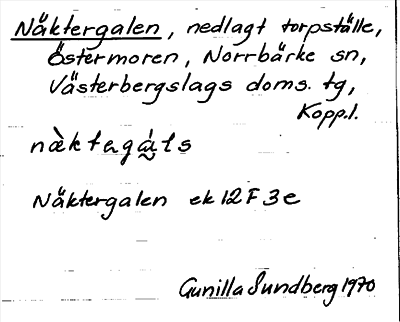 Näktergalen, nedlagt torpställe,
Östermoren, Norrbärke sn,
Västerbergslags doms. tg,
Kopp.l.
Näktergalen ek 12F3e
Gunilla Sundberg 1970